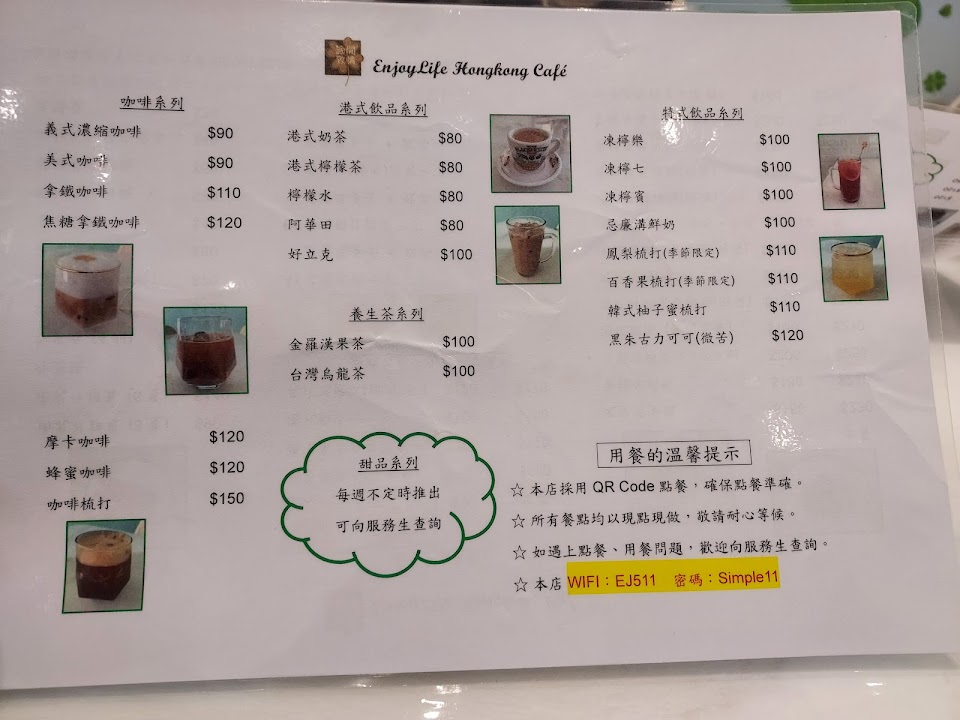 EnjoyLife Hongkong Café
咖啡系列
義式濃縮咖啡 $90
美式咖啡 $90
拿鐵咖啡 $110
焦糖拿鐵咖啡 $120
摩卡咖啡 $120
蜂蜜咖啡 $120
咖啡梳打 $150
港式飲品系列
港式奶茶 $80
港式檸檬茶 $80
檸檬水 $80
阿華田 $80
好立克 $100
養生茶系列
金羅漢果茶 $100
台灣烏龍茶 $100
甜品系列
每週不定時推出
可向服務生查詢
特式飲品系列
凍檸樂 $100
凍檸七 $100
凍檸賓 $100
忌廉溝鮮奶 $100
鳳梨梳打(季節限定) $110
百香果梳打(季節限定) $110
韓式柚子蜜梳打 $110
黑朱古力可可(微苦) $120
用餐的溫馨提示
☆ 本店採用 QR Code 點餐，確保點餐準確。
☆ 所有餐點均以現點現做，敬請耐心等候。
☆ 如遇上點餐、用餐問題，歡迎向服務生查詢。
☆ 本店 WIFI：EJ511 密碼：Simple11